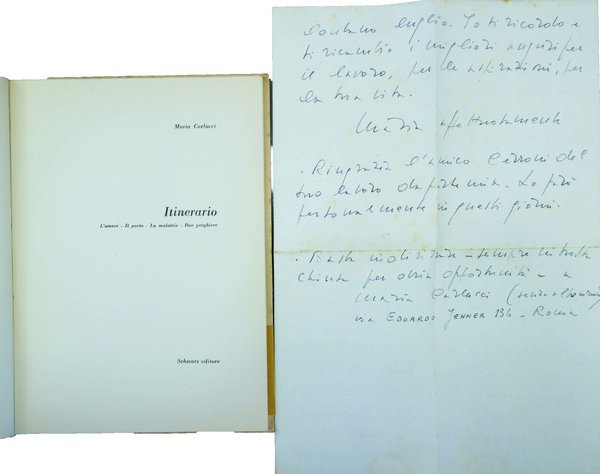 Maria Carlucci
Itinerario
L'amore - Il poeta - La malattia - Due preghiere
Schwarz editore
lontano luglio. Io ti ricordo e
ti ricambio i migliori auguri per
il lavoro, per le aspirazioni, per
la tua vita.
Maria affettuosamente
. Ringrazia l'amico Cerroni del
suo lavoro da parte mia. Lo farò
personalmente in questi giorni.
. Basta indirizzare - sempre in busta
chiusa per ovvia opportunità - a
Maria Carlucci (senza altro
via EDOARDO JENNER 136 - Roma